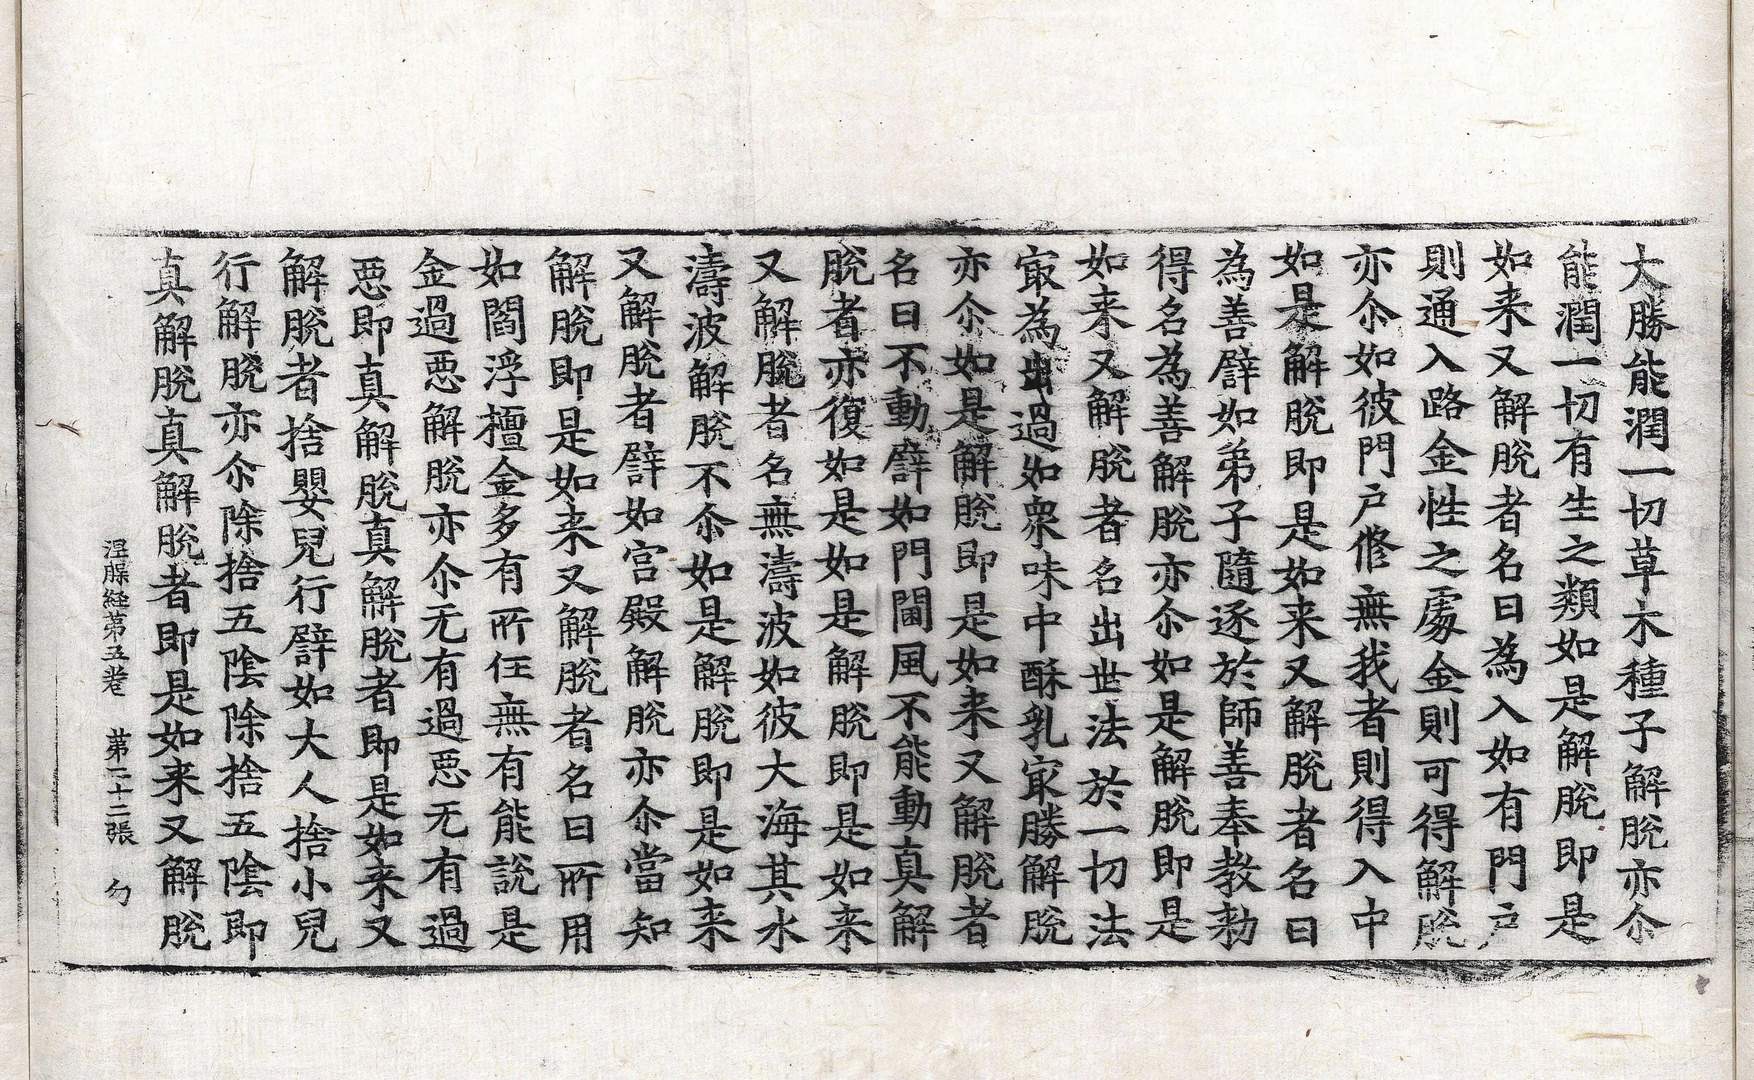 大勝能潤一切草木種子解脫亦尒
能潤一切有生之類如是解脫即是
如来又解脫者名曰為入如有門户
則通入路金性之處金則可得解脫
亦尒如彼門户修無我者則得入中
如是解脫即是如来又解脫者名曰
為善譬如弟子隨逐於師善奉教勑
得名為善解脫亦尒如是解脫即是
如来又解脫者名出世法於一切法
㝡為出過如衆味中酥乳㝡勝解脫
亦尒如是解脫即是如来又解脫者
名曰不動譬如門閫風不能動真解
脫者亦復如是如是解脫即是如来
又解脫者名無濤波如彼大海其水
濤波解脫不尒如是解脫即是如来
又解脫者譬如宫殿解脫亦尒當知
解脫即是如来又解脫者名曰所用
如閻浮檀金多有所任無有能說是
金過惡解脫亦尒无有過惡无有過
惡即真解脫真解脫者即是如来又
解脫者捨嬰兒行譬如大人捨小兒
行解脫亦尒除捨五陰除捨五陰即
真解脫真解脫者即是如来又解脫
涅槃経苐五卷　苐二十二張　勿